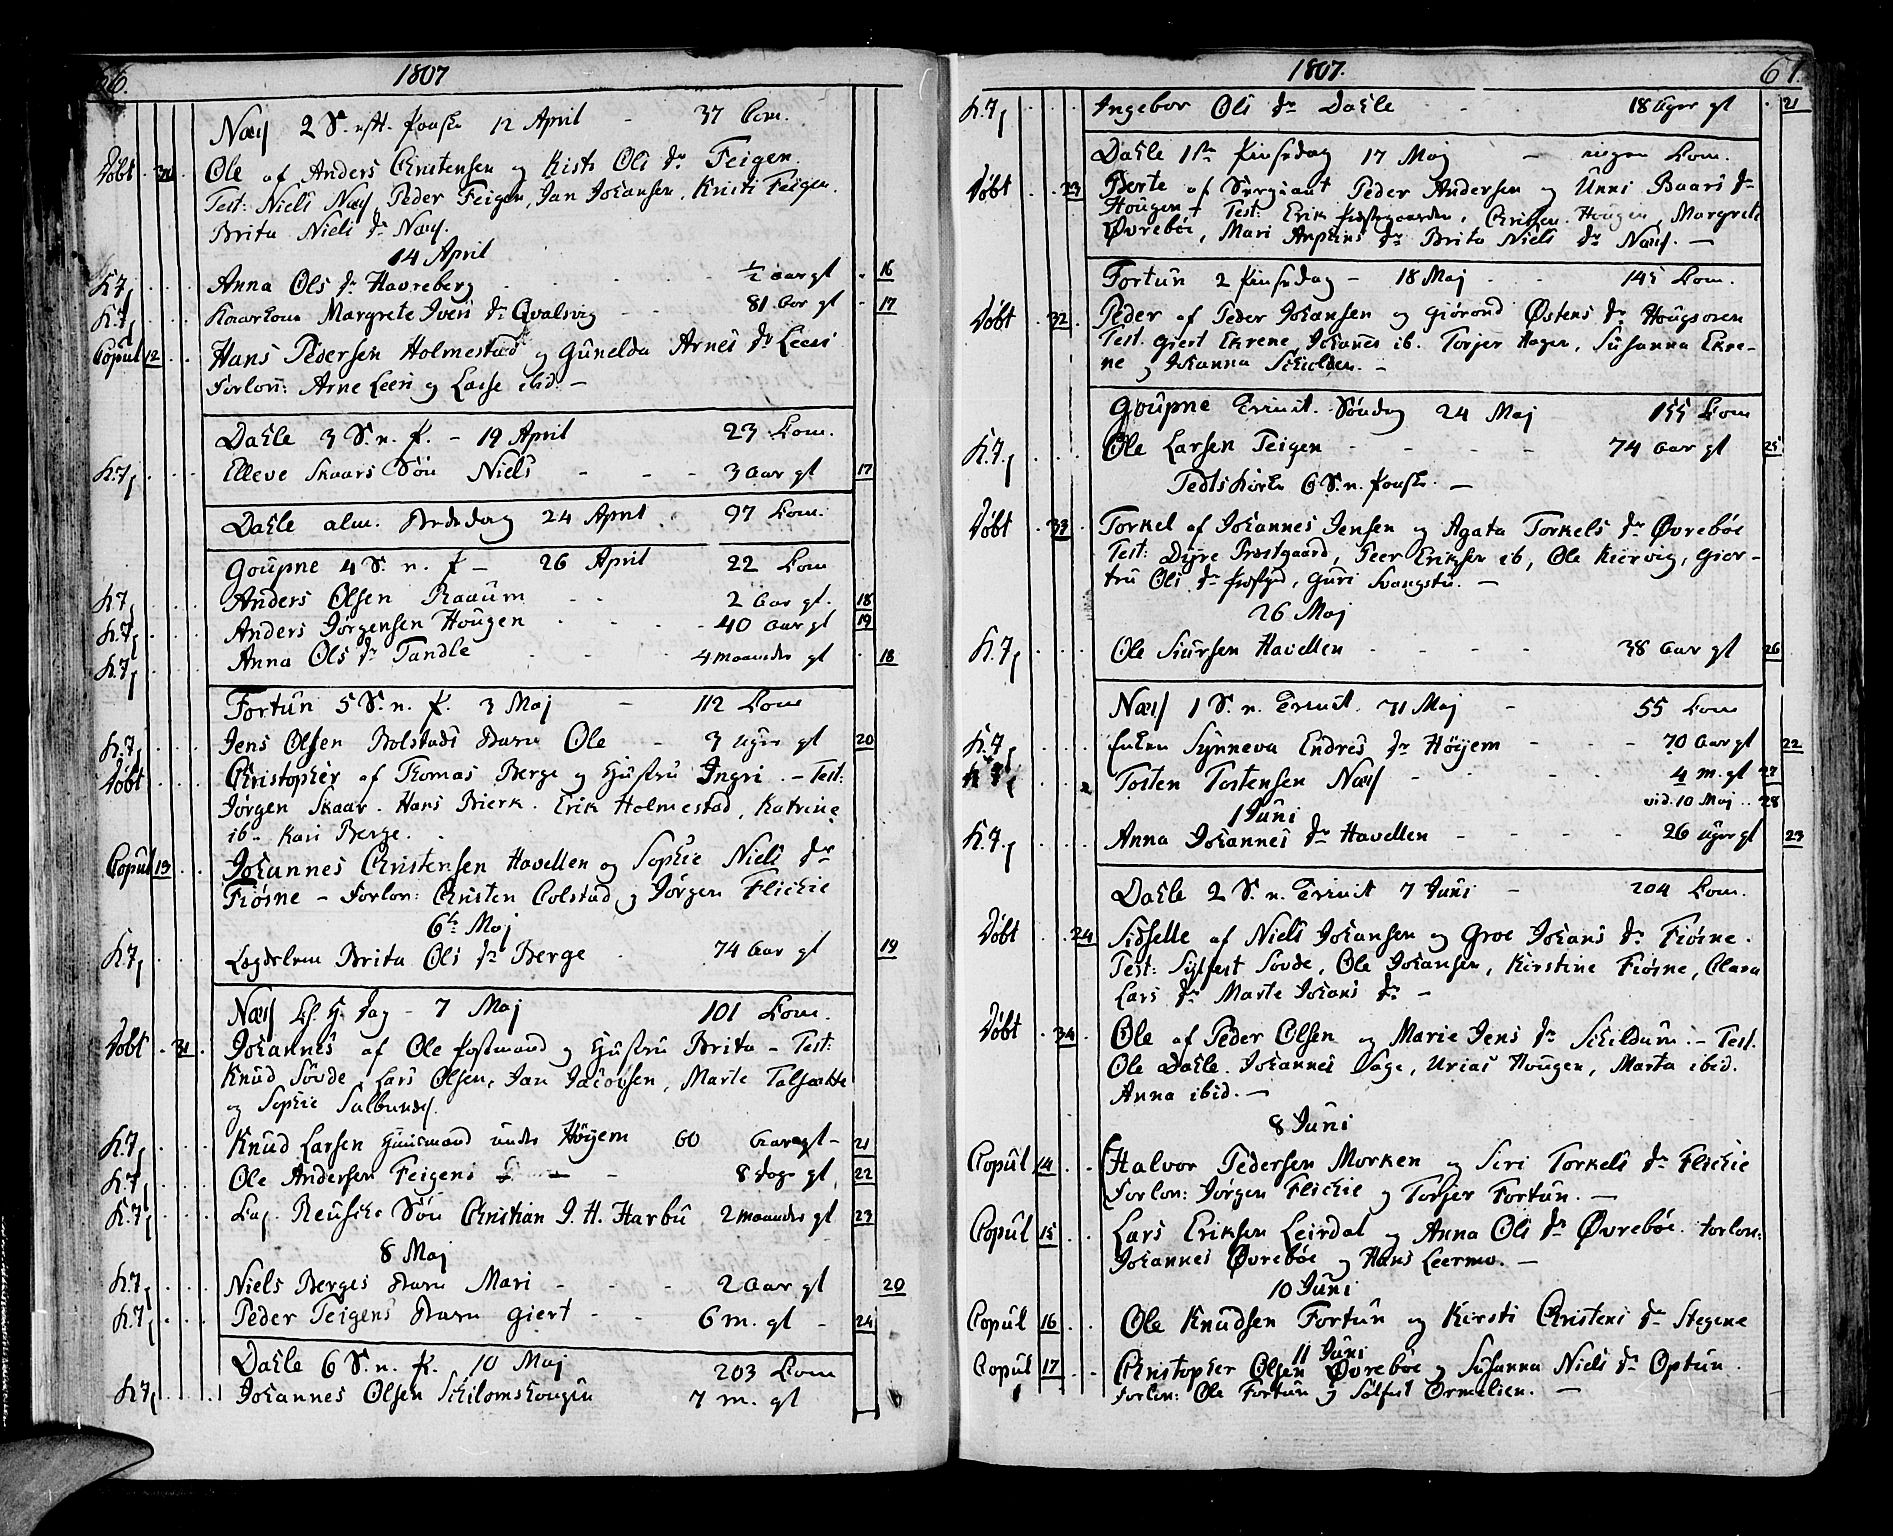 66.
1807
Næss 2 S. eft. Paaske 12 April - 37 Com.
Døbt 30 Ole af Anders Christensen og Kisti Ols Dr Feigen.
Test: Niels Næss, Peder Feigen, Jan Johansen, Kristi Feigen.
Brita Niels Dr Næss.
14 April
K.J. Anna Ols Dr Havreberg ½ aar gl 16
K.J. Margrete Ivers Dr Qvalsvig 81 aar gl 17
Copul 12 Hans Pedersen Holmestad og Gunelda Arnes Dr Leeri
Forlov: Arne Leeri og Lasse ibid. -
Dahle 3 S. n. P. - 19 April 23 Com.
K.J. Elleve Skaars Søn Niels - - - 3 aar gl 17
Dahle alm. Bededag 24 April 97 Com.
Goupne 4 S. n. P - 26 April 22 Com
K.J. Anders Olsen Raaum 2 aar gl. 18
K.J. Anders Jørgensen Hougen 40 aar gl 19
K.J. Anna Ols Dr Tandle 4 maaneder gl 18
Fortun 5 S. n. P. 3 Maj - 112 Com
K.J. Jens Olsen Bolstads Barn Ole - 3 uger gl 20
Døbt Christopher af Thomas Berge og Hustru Ingri. - Test:
Jørgen Skaar. Hans Bierk. Erik Holmestad, Katrine
ib. Kari Berge.
Copul 13 Johannes Christensen Havellen og Sophie Niels Dr
Fiøsne - Forlov: Christen Bolstad og Jørgen Flichie
6te Maj
K.J. Brita Ols Dr Berge 74 aar gl 19
Næss Chr. H. Dag - 7 Maj 101 Com.
Døbt 31 Johannes af Ole Postmand og Hustru Brita - Test:
Knud Søvde, Lars Olsen, Jan Jacobsen, Marte Talsætte
og Sophie
K.J. Knud Larsen Huusmand under Høyem 60 aar gl - 21
K.J. Ole Andersen Feigens - 8 dage gl 22
K.J. Reusche Søn Christian J. H. Harbu 2 maaneder gl 23
8 Maj
K.J. Niels Berges Barn Mari - - - 2 aar gl 20
K.J. Peder Teigens Barn Giert - - 6 m. gl - 24
Dahle 6 S. n. P. 10 Maj 203 Com
K.J. Johannes Olsen 7 m. gl
1807.
67.
K.J. Ingebor Ols Dr Dahle 18 uger gl 21
Dahle 1ste Pinsedag 17 Maj - ingen Com.
Døbt 23 Berte af Sergiant Peder Andersen og Unni Baars Dr
Hougen + Test: Erik Præstegaarden, Christen Hougen, Margrete
Øvrebøe, Mari Dr Brita Niels Dr Næss. -
Fortun 2 Pinsedag - 18 Maj 145 Com.
Døbt 32 Peder af Peder Johansen og Giørond Østens Dr Hougsoren
Test. Giert Ekrene, Johanes ib. Torjer Hagen, Susanna Ekre-
ne og Johanna Schiolden. -
Goupne Trinit. Søndag 24 Maj 155 Com
K.J. Ole Larsen Teigen - - - 74 aar gl 25
Jedts Kirke 6 S. n. Paaske. -
Døbt 33 Torkel af Johannes Jensen og Agata Torkels Dr Øvrebøe
Test: Dyre Præstgaard, Peer Eriksen ib, Ole Kiervig, Gior-
tru Ols Dr, Guri Svangstu. -
26 Maj
K.J. Ole Siursen Havellen - - - - 38 aar gl 26
Næss 1 S. n. Trinit. 31 Maj - 55 Com
K.J. Enken Synneva Endres Dr Høyem - - - 70 aar gl 22
K.J. Tosten Tostensen Næss - - - 4 m. gl 27
vid. 10 Maj .. 28
1 Juni
K.J. Anna Johannes Dr Havellen - - - - 26 uger gl 23
Dahle 2 S. n. Trinit 7 Juni - 204 Com.
Døbt 24 Sidselle af Niels Johansen og Groe Johans Dr Fiøsne.
Test: Sylfest Søvde, Ole Johansen, Kirstine Fiøsne, Clara
Lars Dr Marte Johans Dr -
Døbt 34 Ole af Peder Olsen og Marie Jens Dr Schildum. - Test.
Ole Dahle. Johannes Hage, Urias Hougen, Marta ibid.
Anna ibid. -
8 Juni
Copul 14 Halvor Pedersen Morken og Siri Torkels Dr Flichie
Forlov: Jørgen Flichie og Torjer Fortun. -
Copul 15 Lars Eriksen Leirdal og Anna Ols Dr Øvrebøe. Forlov:
Johannes Øvrebøe og Hans Leermo. -
10 Juni
Copul 16 Ole Knudsen Fortun og Kirsti Christens Dr Stegene
11 Juni
Copul 17 Christopher Olsen Øvrebøe og Susanna Niels Dr Optun.
Forlov: Ole Fortun og Sølfest Ormelien. -